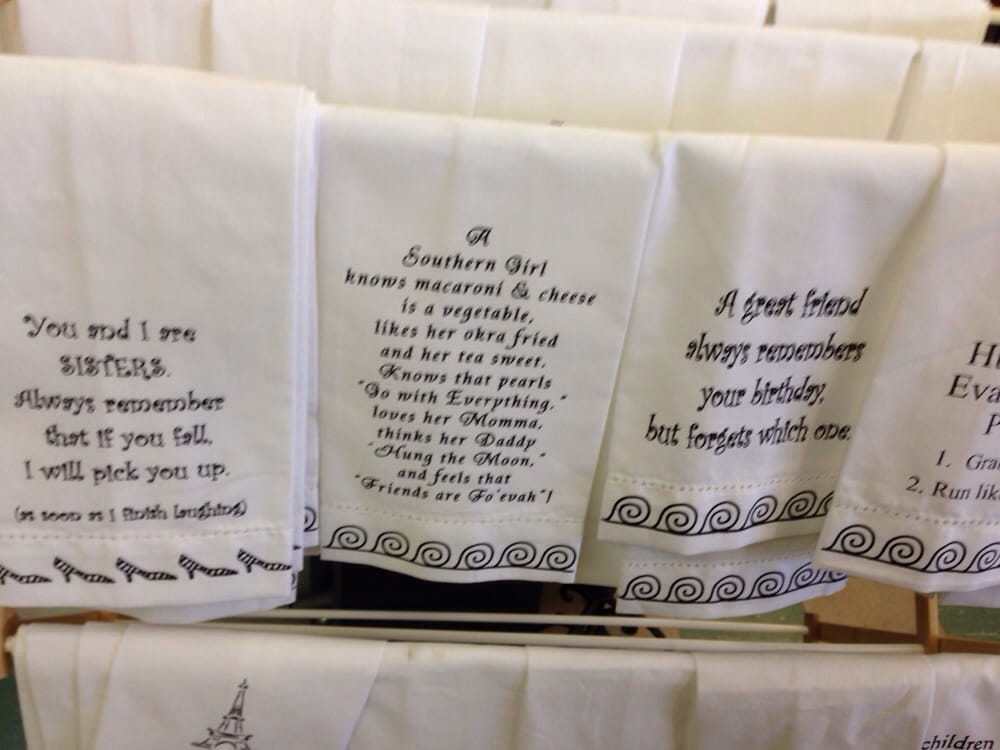 You and I are
SISTERS.
Always remember
that if you fall,
I will pick you up.
(as soon as I finish laughing)
A
Southern Girl
knows macaroni & cheese
is a vegetable,
likes her okra fried
and her tea sweet.
Knows that pearls
"Go with Everything."
loves her Momma,
thinks her Daddy
"Hung the Moon,"
and feels that
"Friends are Fo'evah"!
A great friend
always remembers
your birthday,
but forgets which one.
1.
2. Run
children